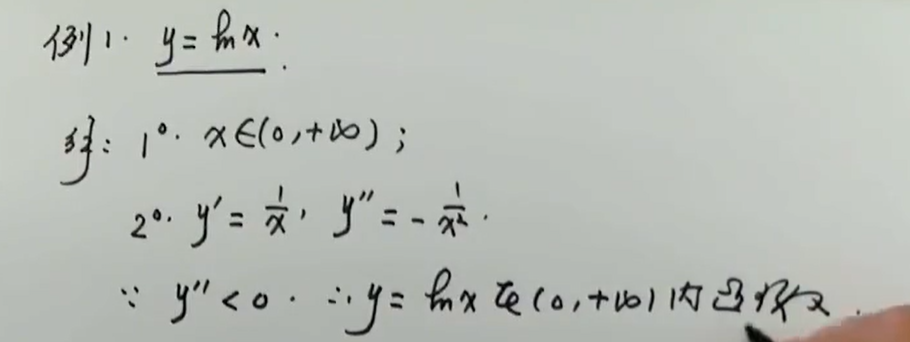 例1. y = ln x.
解: 1°. x∈(0,+∞);
2°. y′ = 1/x, y″ = -1/x².
∵ y″ < 0. ∴ y = ln x 在(0,+∞)内